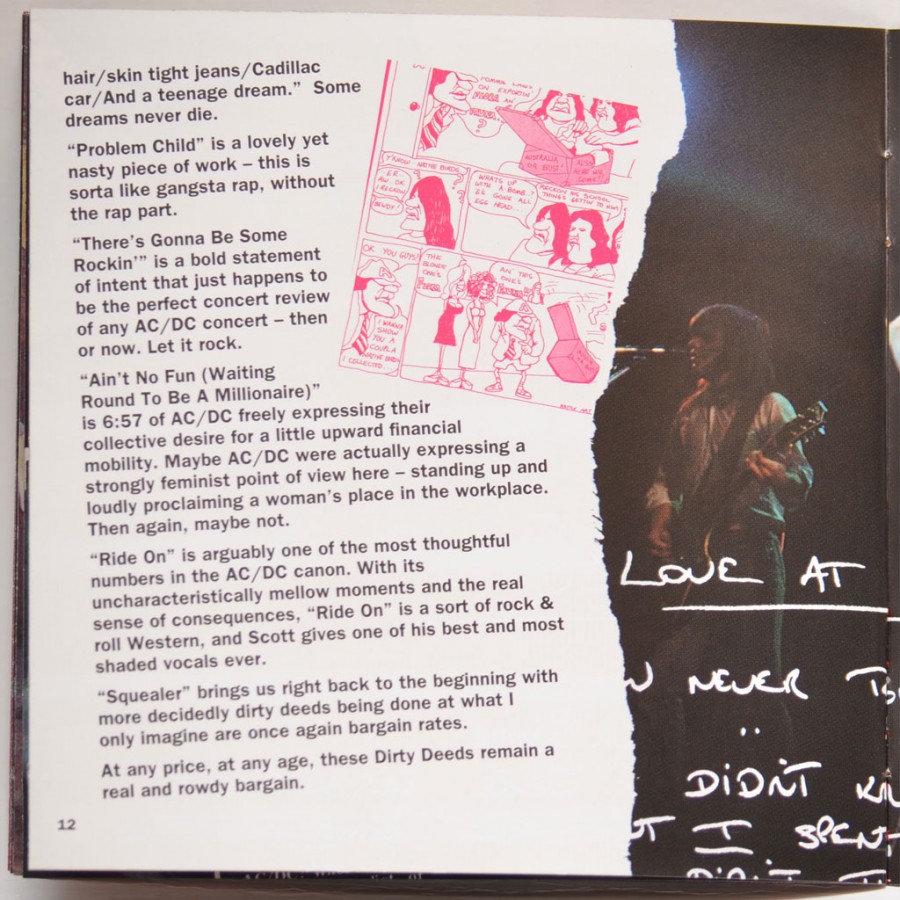 hair/skin tight jeans/Cadillac
car/And a teenage dream.” Some
dreams never die.
“Problem Child” is a lovely yet
nasty piece of work – this is
sorta like gangsta rap, without
the rap part.
“There’s Gonna Be Some
Rockin’” is a bold statement
of intent that just happens to
be the perfect concert review
of any AC/DC concert – then
or now. Let it rock.
“Ain’t No Fun (Waiting
Round To Be A Millionaire)”
is 6:57 of AC/DC freely expressing their
collective desire for a little upward financial
mobility. Maybe AC/DC were actually expressing a
strongly feminist point of view here – standing up and
loudly proclaiming a woman’s place in the workplace.
Then again, maybe not.
“Ride On” is arguably one of the most thoughtful
numbers in the AC/DC canon. With its
uncharacteristically mellow moments and the real
sense of consequences, “Ride On” is a sort of rock &
roll Western, and Scott gives one of his best and most
shaded vocals ever.
“Squealer” brings us right back to the beginning with
more decidedly dirty deeds being done at what I
only imagine are once again bargain rates.
At any price, at any age, these Dirty Deeds remain a
real and rowdy bargain.
12
ON EXPORTIN'
AN
?
AUSTRALIA
OR BUST!
NATIVE BIRDS
ER
AW OR
I RECKON
WHAT'S UP
WITH A BOMB..?
E'S GONE ALL
EGG HEAD..
RECKON HIS SCHOOL
THING'S GETTIN' TO HIM!
OK YOU GUYS!
I WANNA
SHOW
YOU A
COUPLA
NATIVE BIRDS
I COLLECTED...
THE
BLONDE
ONE'S
AN' THIS
ONE'S
LOVE AT
NEVER
DIDNT
I SPENT